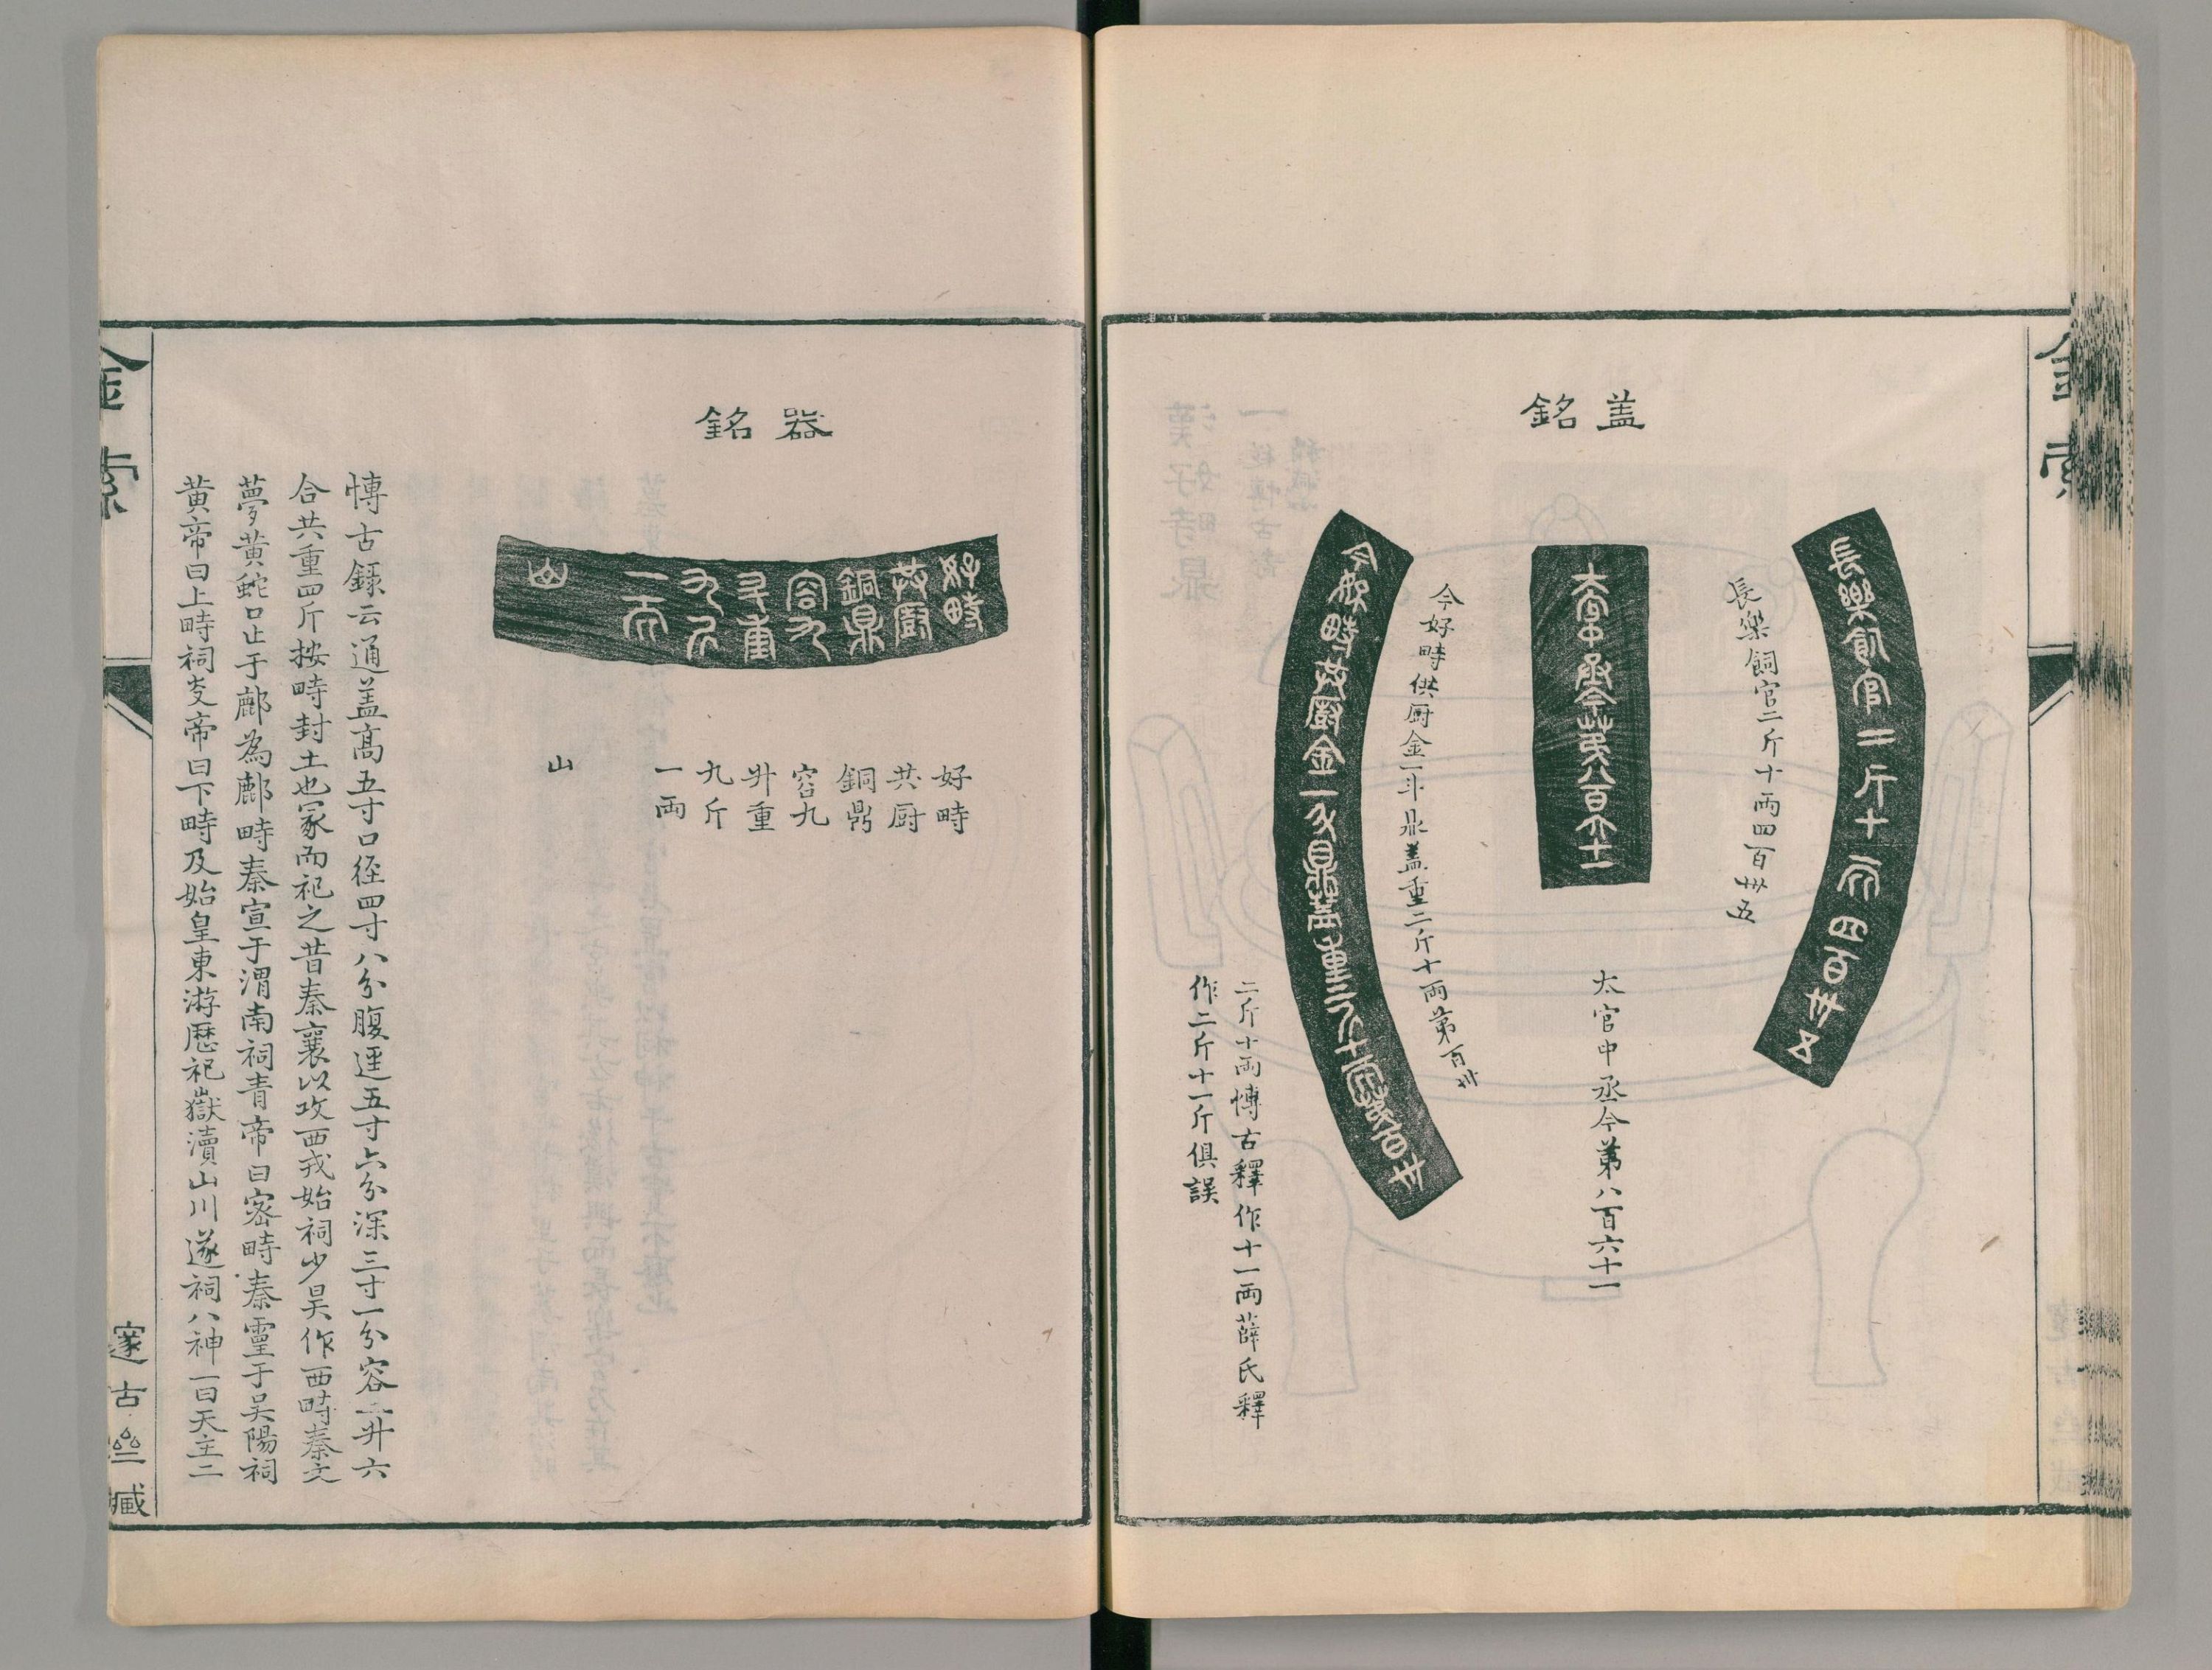 金索
蓋銘
長樂飤官二斤十兩四百卅五
長樂飼官二斤十兩四百卅五
大官中丞今第八百六十一
太官中丞今第八百六十一
今好畤共廚金一斗鼎蓋重二斤十兩第百卅
今好畤供厨金一斗鼎盖重二斤十兩第百卅
二斤十兩博古釋作十一兩薛氏釋
作二斤十一斤俱誤
器銘
好畤
共廚
銅鼎
容九
升重
九斤
一兩
山
好畤
共厨
銅鼎
容九
升重
九斤
一兩
山
博古錄云通盖高五寸口徑四寸八分腹逕五寸六分深三寸一分容二升六
合共重四斤按畤封土也冢而祀之昔秦襄以攻西戎始祠少昊作西畤秦文
夢黃蛇口止于鄜為鄜畤秦宣于渭南祠青帝曰密畤秦靈于吳陽祠
黃帝曰上畤祠炎帝曰下畤及始皇東游歷祀嶽瀆山川遂祠八神一曰天主二
金索
邃古
藏